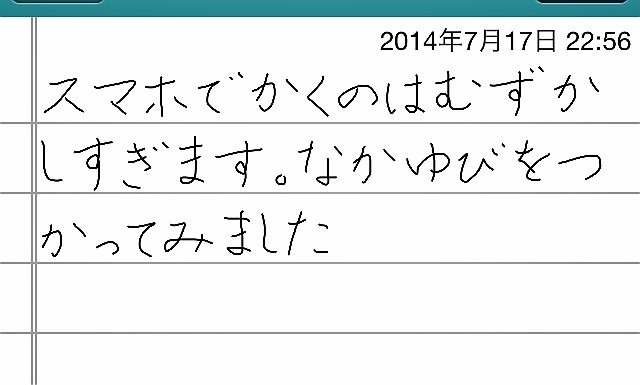 2014年7月17日 22:56
スマホでかくのはむずか
しすぎます。なかゆびをつ
かってみました